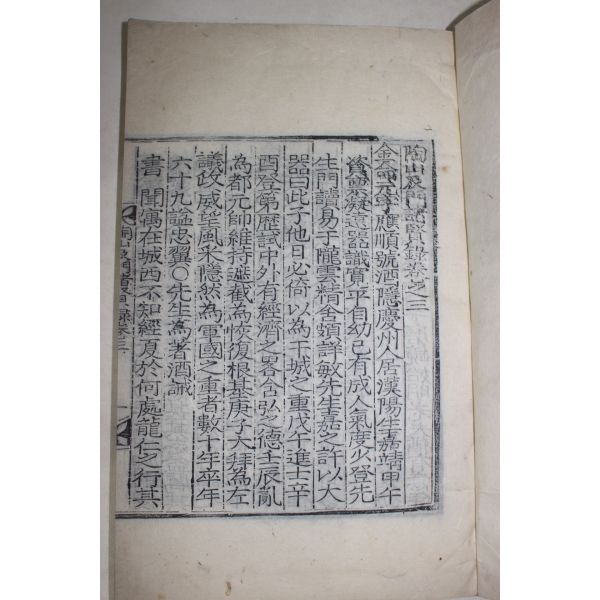 陶山及門諸賢錄卷之三
金命元字應順號酒隱慶州人居漢陽生嘉靖甲午
資稟凝遠器識寬平自幼已有成人氣度少登先
生門讀易于隴雲精舍頗詳敏先生嘉之許以大
器曰此子他日必倚以為干城之重戊午進士辛
酉登第歷試中外有經濟之畧含弘之德壬辰亂
為都元帥維持遮截為恢復根基庚子大拜為左
議政威望風采隱然為軍國之重者數十年卒年
六十九謚忠翼○先生為著酒誡
書 聞寓在城西不知經夏於何處龍仁之行其
陶山及門諸賢錄卷三